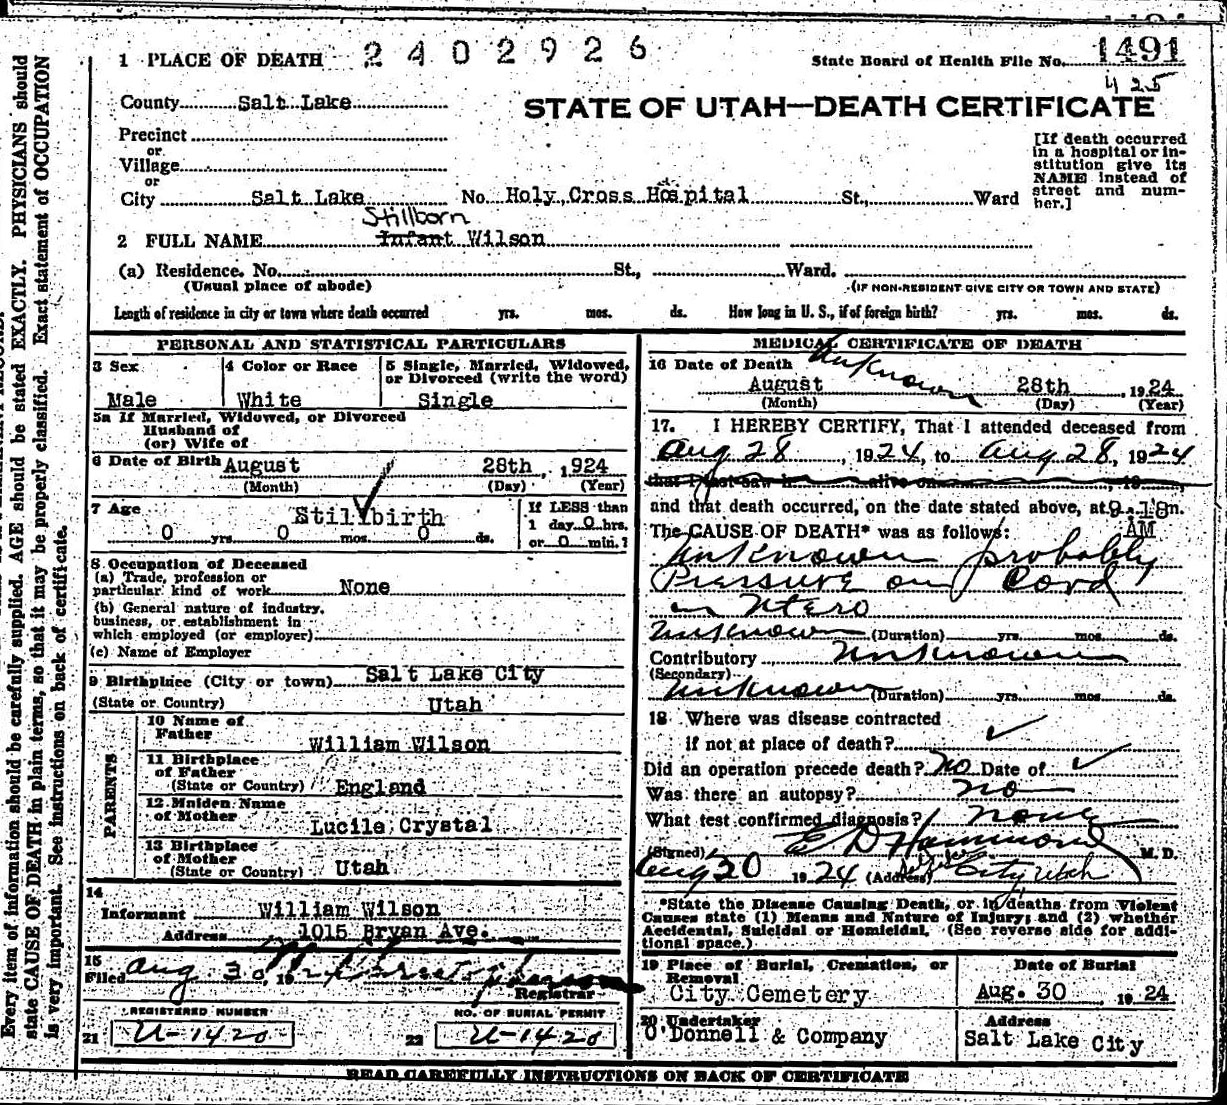 1 PLACE OF DEATH 2402926 State Board of Health File No. 1491
425
County Salt Lake STATE OF UTAH—DEATH CERTIFICATE
Precinct
or
Village
or
City Salt Lake No. Holy Cross Hospital St., Ward
[If death occurred
in a hospital or in-
stitution give its
NAME instead of
street and num-
ber.]
Stillborn
2 FULL NAME Infant Wilson
(a) Residence. No. St., Ward.
(Usual place of abode) (IF NON-RESIDENT GIVE CITY OR TOWN AND STATE)
Length of residence in city or town where death occurred yrs. mos. ds. How long in U. S., if of foreign birth? yrs. mos. ds.
PERSONAL AND STATISTICAL PARTICULARS
3 Sex 4 Color or Race 5 Single, Married, Widowed,
or Divorced (write the word)
Male White Single
5a If Married, Widowed, or Divorced
Husband of
(or) Wife of
6 Date of Birth August 28th, 1924
(Month) (Day) (Year)
7 Age Stillbirth
0 yrs. 0 mos. 0 ds.
If LESS than
1 day 0 hrs.
or 0 min.?
8 Occupation of Deceased
(a) Trade, profession or
particular kind of work None
(b) General nature of industry,
business, or establishment in
which employed (or employer)
(c) Name of Employer
9 Birthplace (City or town) Salt Lake City
(State or Country) Utah
PARENTS
10 Name of
Father William Wilson
11 Birthplace
of Father
(State or Country) England
12 Maiden Name
of Mother Lucile Crystal
13 Birthplace
of Mother
(State or Country) Utah
14
Informant William Wilson
Address 1015 Bryan Ave.
15
Filed Aug 30, 1924
Registrar
REGISTERED NUMBER NO. OF BURIAL PERMIT
21 U-1420 22 U-1420
MEDICAL CERTIFICATE OF DEATH
16 Date of Death Unknown
August 28th, 1924
(Month) (Day) (Year)
17. I HEREBY CERTIFY, That I attended deceased from
Aug 28, 1924, to Aug 28, 1924
that I last saw h alive on 19
and that death occurred, on the date stated above, at 9.18 m.
AM
The CAUSE OF DEATH* was as follows:
Unknown probably
Pressure on Cord
in Utero
Unknown (Duration) yrs. mos. ds.
Contributory Unknown
(Secondary)
Unknown (Duration) yrs. mos. ds.
18 Where was disease contracted
if not at place of death?
Did an operation precede death? No Date of
Was there an autopsy? no
What test confirmed diagnosis? none
(Signed) E D Hammond M. D.
Aug 20 1924 (Address) City, Utah
*State the Disease Causing Death, or in deaths from Violent
Causes state (1) Means and Nature of Injury; and (2) whether
Accidental, Suicidal or Homicidal. (See reverse side for addi-
tional space.)
19 Place of Burial, Cremation, or
Removal
City Cemetery
Date of Burial
Aug. 30, 1924
20 Undertaker
O'Donnell & Company
Address
Salt Lake City
READ CAREFULLY INSTRUCTIONS ON BACK OF CERTIFICATE
Every item of information should be carefully supplied. AGE should be stated EXACTLY. PHYSICIANS should
state CAUSE OF DEATH in plain terms, so that it may be properly classified. Exact statement of OCCUPATION
is very important. See instructions on back of certificate.